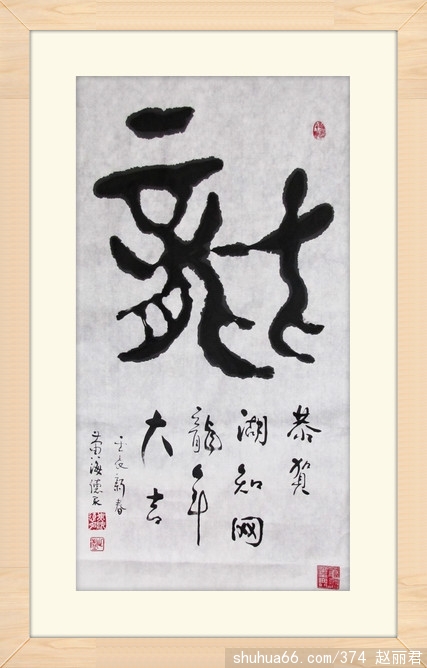 龍
恭賀
湖知网
龍年
大吉
壬辰新春
shuhua66.com/374 赵丽君